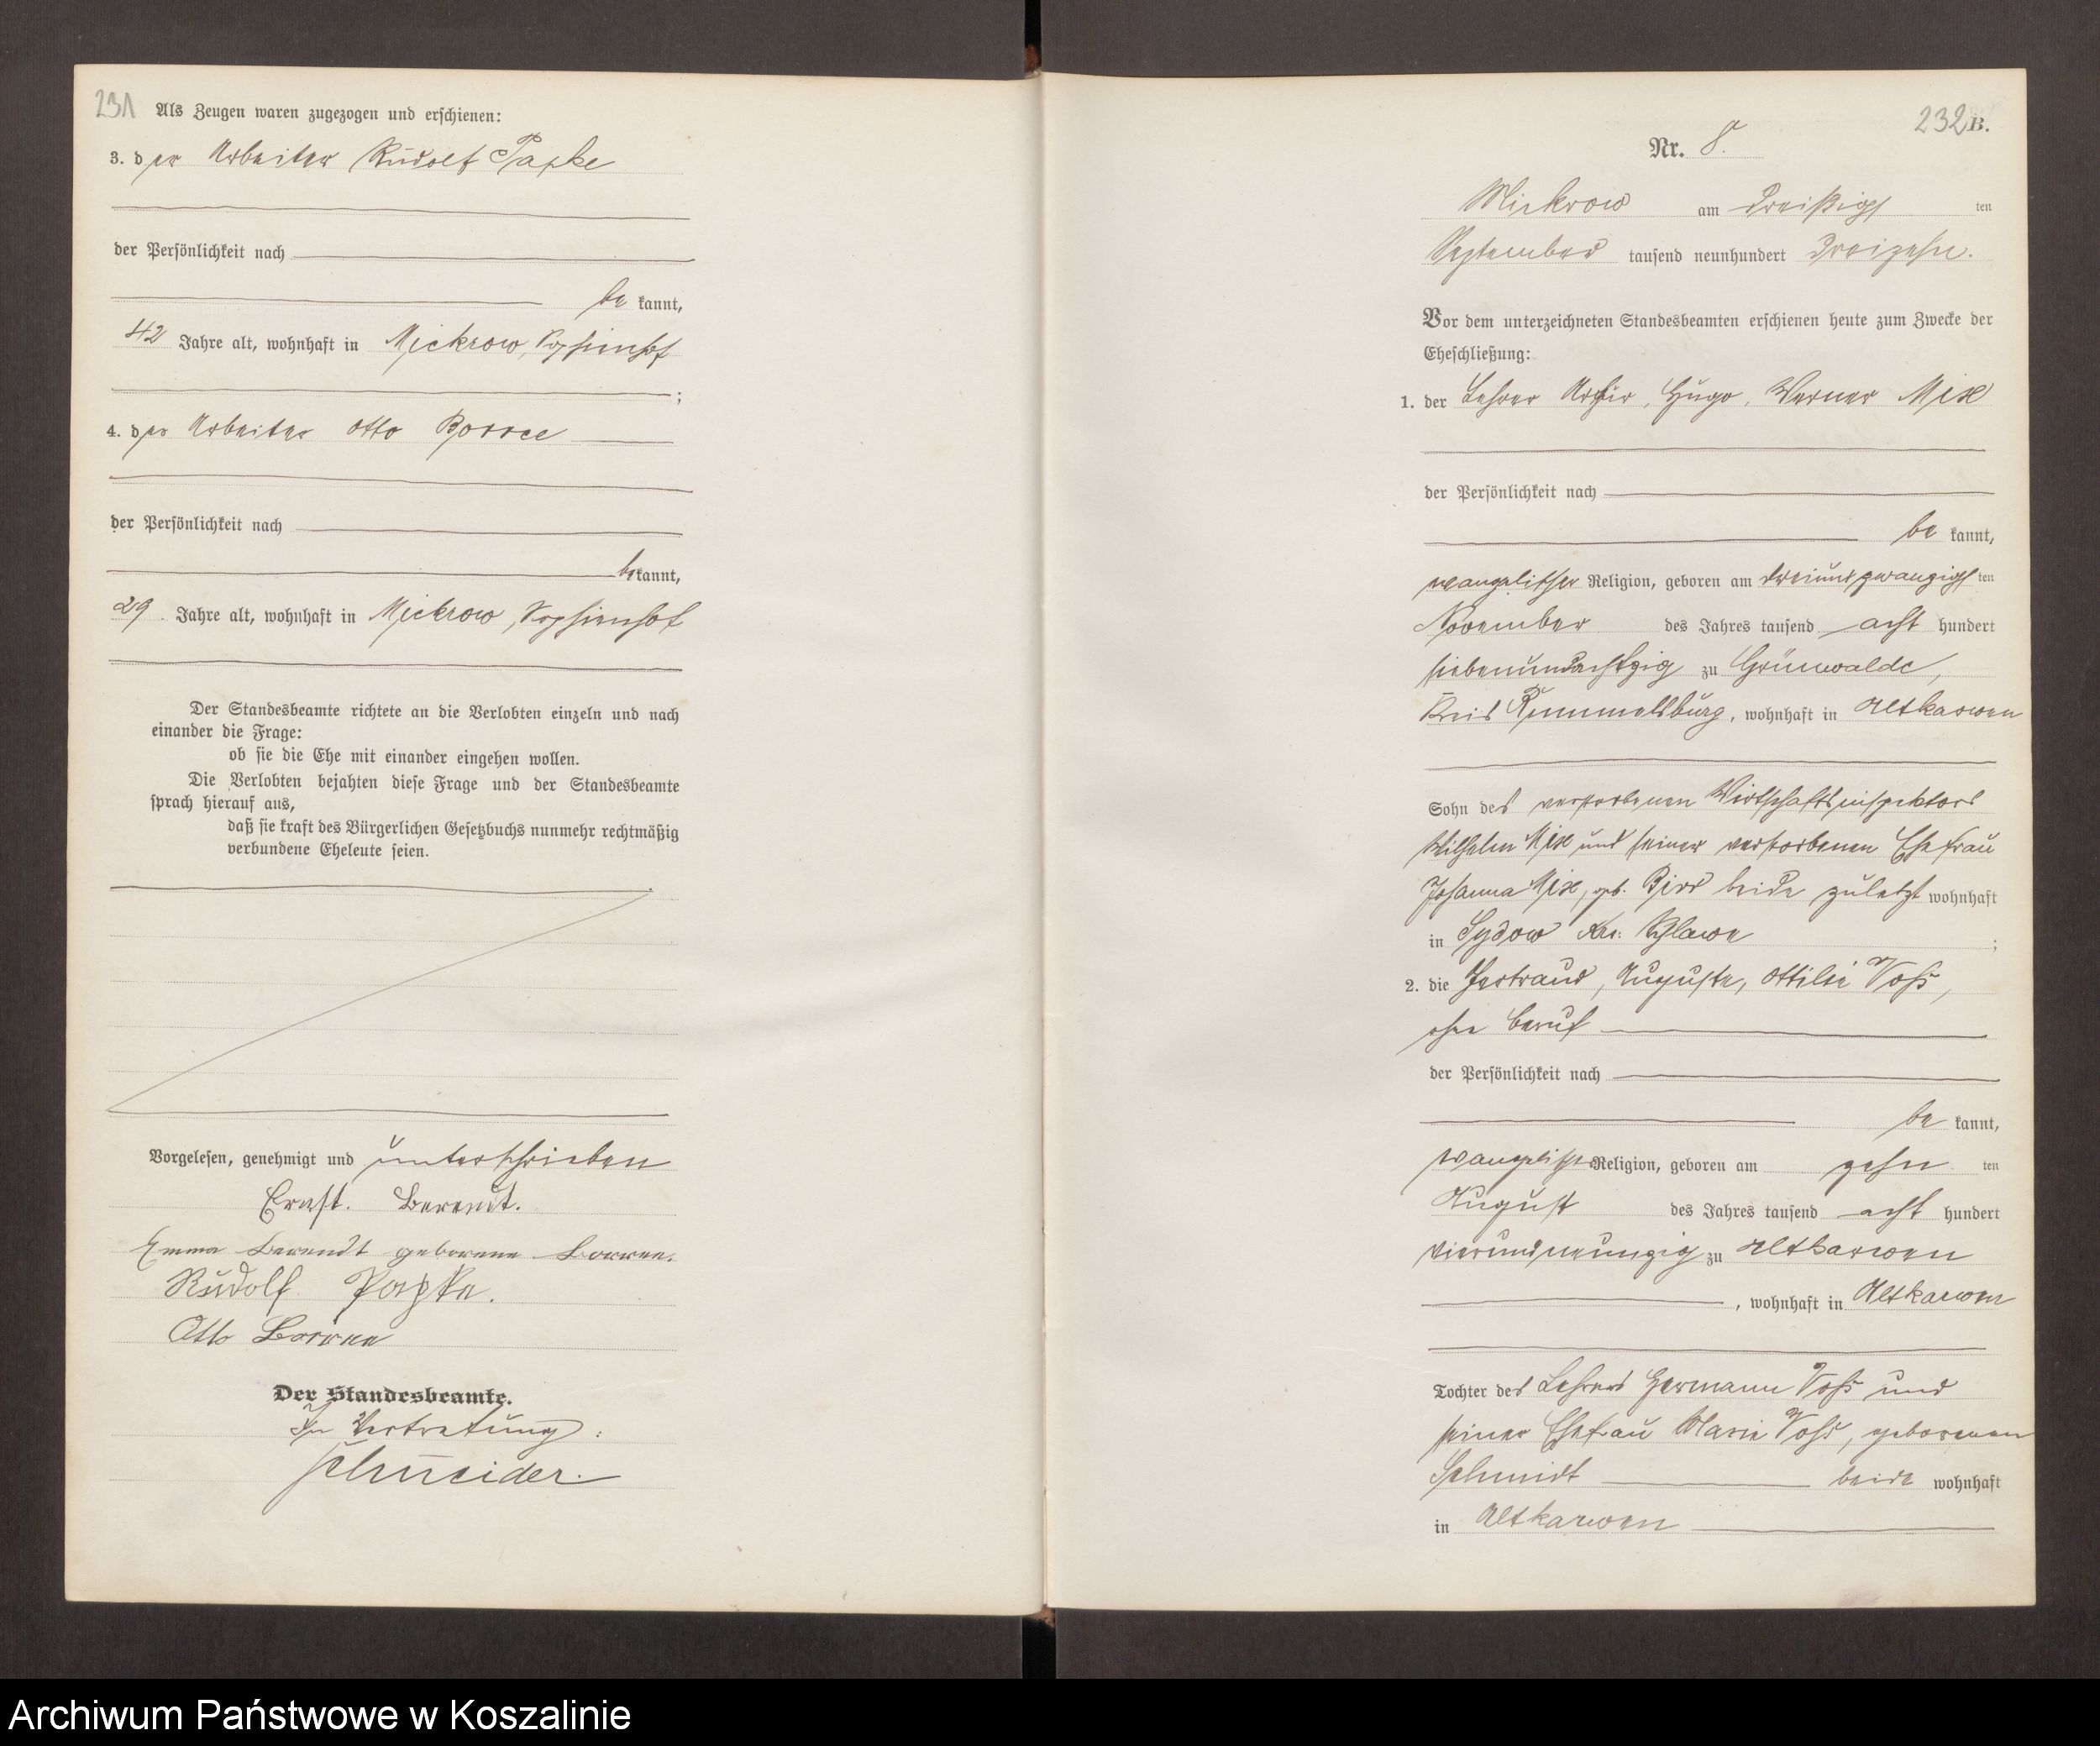 231
Als Zeugen waren zugezogen und erschienen:
3. der Arbeiter Rudolf Papke
der Persönlichkeit nach
be kannt,
42 Jahre alt, wohnhaft in Mickrow, Sophienhof
;
4. der Arbeiter Otto Borree
der Persönlichkeit nach
be kannt,
29 Jahre alt, wohnhaft in Mickrow, Sophienhof
Der Standesbeamte richtete an die Verlobten einzeln und nach
einander die Frage:
ob sie die Ehe mit einander eingehen wollen.
Die Verlobten bejahten diese Frage und der Standesbeamte
sprach hierauf aus,
daß sie kraft des Bürgerlichen Gesetzbuchs nunmehr rechtmäßig
verbundene Eheleute seien.
Vorgelesen, genehmigt und unterschrieben
Ernst. Berendt.
Emma Berendt geborene Borree.
Rudolf Papke.
Otto Borree
Der Standesbeamte.
In Vertretung:
Schneider.
232
B.
Nr. 8.
Mickrow am dreißigsten
September tausend neunhundert dreizehn.
Vor dem unterzeichneten Standesbeamten erschienen heute zum Zwecke der
Eheschließung:
1. der Lehrer Artur, Hugo, Werner Mix
der Persönlichkeit nach
be kannt,
evangelischer Religion, geboren am dreiundzwanzigsten
November des Jahres tausend acht hundert
siebenundachtzig zu Grünwalde,
Kreis Rummelsburg, wohnhaft in Altkarwen
Sohn des verstorbenen Wirtschaftsinspektors
Wilhelm Mix und seiner verstorbenen Ehefrau
Johanna Mix, geb. beide zuletzt wohnhaft
in Sydow Kr. Schlawe ;
2. die Gertraud, Auguste, Ottilie Voß,
ohne Beruf
der Persönlichkeit nach
be kannt,
evangelischer Religion, geboren am zehn ten
August des Jahres tausend acht hundert
vierundneunzig zu Altkarwen
, wohnhaft in Altkarwen
Tochter des Lehrers Hermann Voß und
seiner Ehefrau Marie Voß, geborenen
Schmidt beide wohnhaft
in Altkarwen
Archiwum Państwowe w Koszalinie